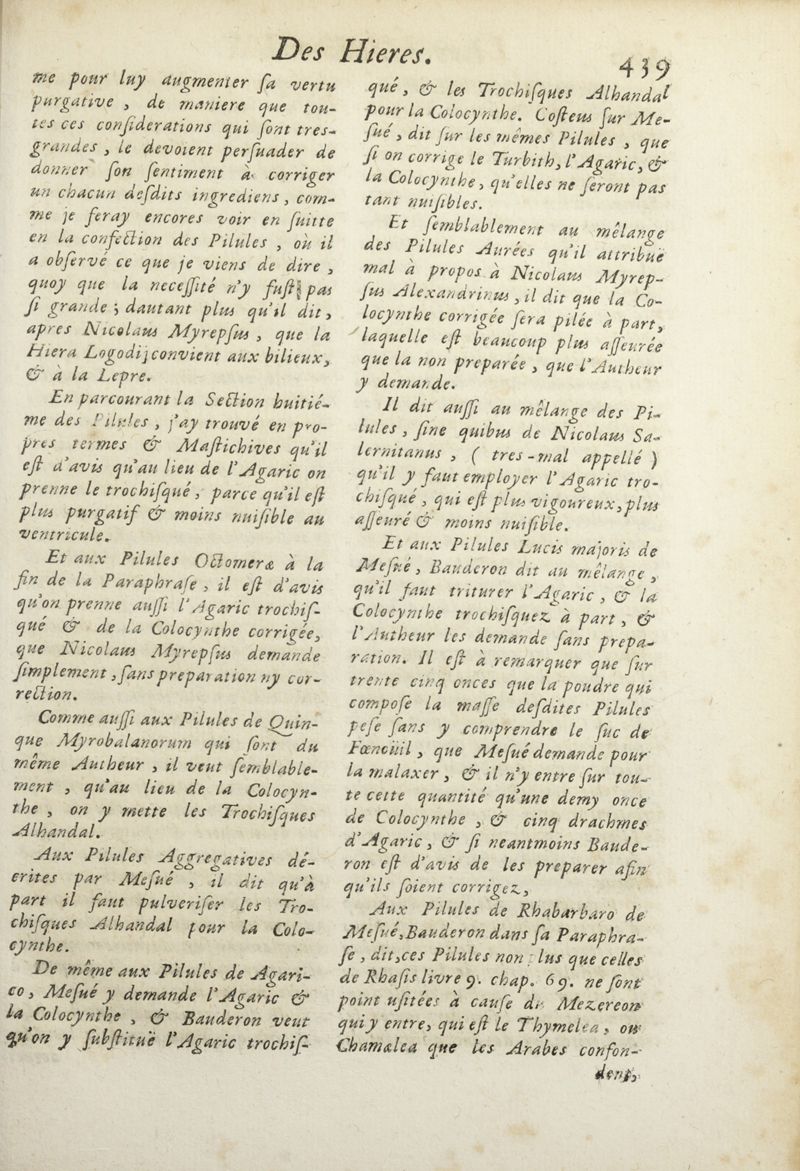 Des Hieres.
439
me pour luy augmenter ſa vertu
purgative , de maniere que tou-
tes ces conſiderations qui ſont tres-
grandes , le devoient perſuader de
donner ſon ſentiment à corriger
un chacun deſdits ingrediens , com-
me je feray encores voir en ſuitte
en la confection des Pilules , où il
a obſervé ce que je viens de dire ,
quoy que la neceſſité n'y fuſt pas
ſi grande ; dautant plus qu'il dit,
apres Nicolaus Myrepſus , que la
Hiera Logodij convient aux bilieux,
& à la Lepre.
En parcourant la Section huitié-
me des Pilules , j'ay trouvé en pro-
pres termes & Maſtichives qu'il
eſt d'avis qu'au lieu de l'Agaric on
prenne le trochiſqué , parce qu'il eſt
plus purgatif & moins nuiſible au
ventricule.
Et aux Pilules Octomeræ à la
fin de la Paraphraſe , il eſt d'avis
qu'on prenne auſſi l'Agaric trochiſ-
qué & de la Colocynthe corrigée,
que Nicolaus Myrepſus demande
ſimplement , ſans preparation ny cor-
rection.
Comme auſſi aux Pilules de Quin-
que Myrobalanorum qui ſont du
même Autheur , il veut ſemblable-
ment , qu'au lieu de la Colocyn-
the , on y mette les Trochiſques
Alhandal.
Aux Pilules Aggregatives dé-
crites par Meſué , il dit qu'à
part il faut pulveriſer les Tro-
chiſques Alhandal pour la Colo-
cynthe.
De même aux Pilules de Agari-
co , Meſué y demande l'Agaric &
la Colocynthe , & Bauderon veut
qu'on y ſubſtituë l'Agaric trochiſ-
qué , & les Trochiſques Alhandal
pour la Colocynthe. Coſteus ſur Me-
ſué , dit ſur les mêmes Pilules , que
ſi on corrige le Turbith, l'Agaric, &
la Colocynthe, qu'elles ne ſeront pas
tant nuiſibles.
Et ſemblablement au mêlange
des Pilules Aurées qu'il attribuë
mal à propos à Nicolaus Myrep-
ſus Alexandrinus , il dit que la Co-
locynthe corrigée ſera pilée à part,
laquelle eſt beaucoup plus aſſeurée
que la non preparée , que l'Autheur
y demande.
Il dit auſſi au mêlange des Pi-
lules , ſine quibus de Nicolaus Sa-
lernitanus , ( tres-mal appellé )
qu'il y faut employer l'Agaric tro-
chiſqué , qui eſt plus vigoureux, plus
aſſeuré & moins nuiſible.
Et aux Pilules Lucis majoris de
Meſué , Bauderon dit au mêlange ,
qu'il faut triturer l'Agaric , & la
Colocynthe trochiſquez à part , &
l'Autheur les demande ſans prepa-
ration. Il eſt à remarquer que ſur
trente cinq onces que la poudre qui
compoſe la maſſe deſdites Pilules
peſe ſans y comprendre le ſuc de
Fœnoüil , que Meſué demande pour
la malaxer , & il n'y entre ſur tou-
te cette quantité qu'une demy once
de Colocynthe , & cinq drachmes
d'Agaric , & ſi neantmoins Baude-
ron eſt d'avis de les preparer afin
qu'ils ſoient corrigez,
Aux Pilules de Rhabarbaro de
Meſué, Bauderon dans ſa Paraphra-
ſe , dit, ces Pilules non plus que celles
de Rhaſis livre 9. chap. 69. ne ſont
point uſitées à cauſe du Mezereon
qui y entre, qui eſt le Thymelea , ou
Chamælea que les Arabes confon-
dent,